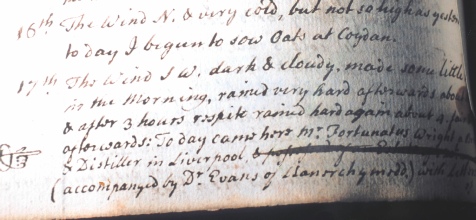 16th The Wind N. & very cold, but not so high as yester
to day I begun to sow Oats at Coydan.
17th The Wind S W. dark & cloudy, made some little
in the Morning, rained very hard afterwards abou
& after 3 hours respite rained hard again about
afterwards: To day came here Mr. Fortunatus Wright
& Distiller in Liverpool, &
(accompanyed by Dr. Evans of Llanerchymedd,) with